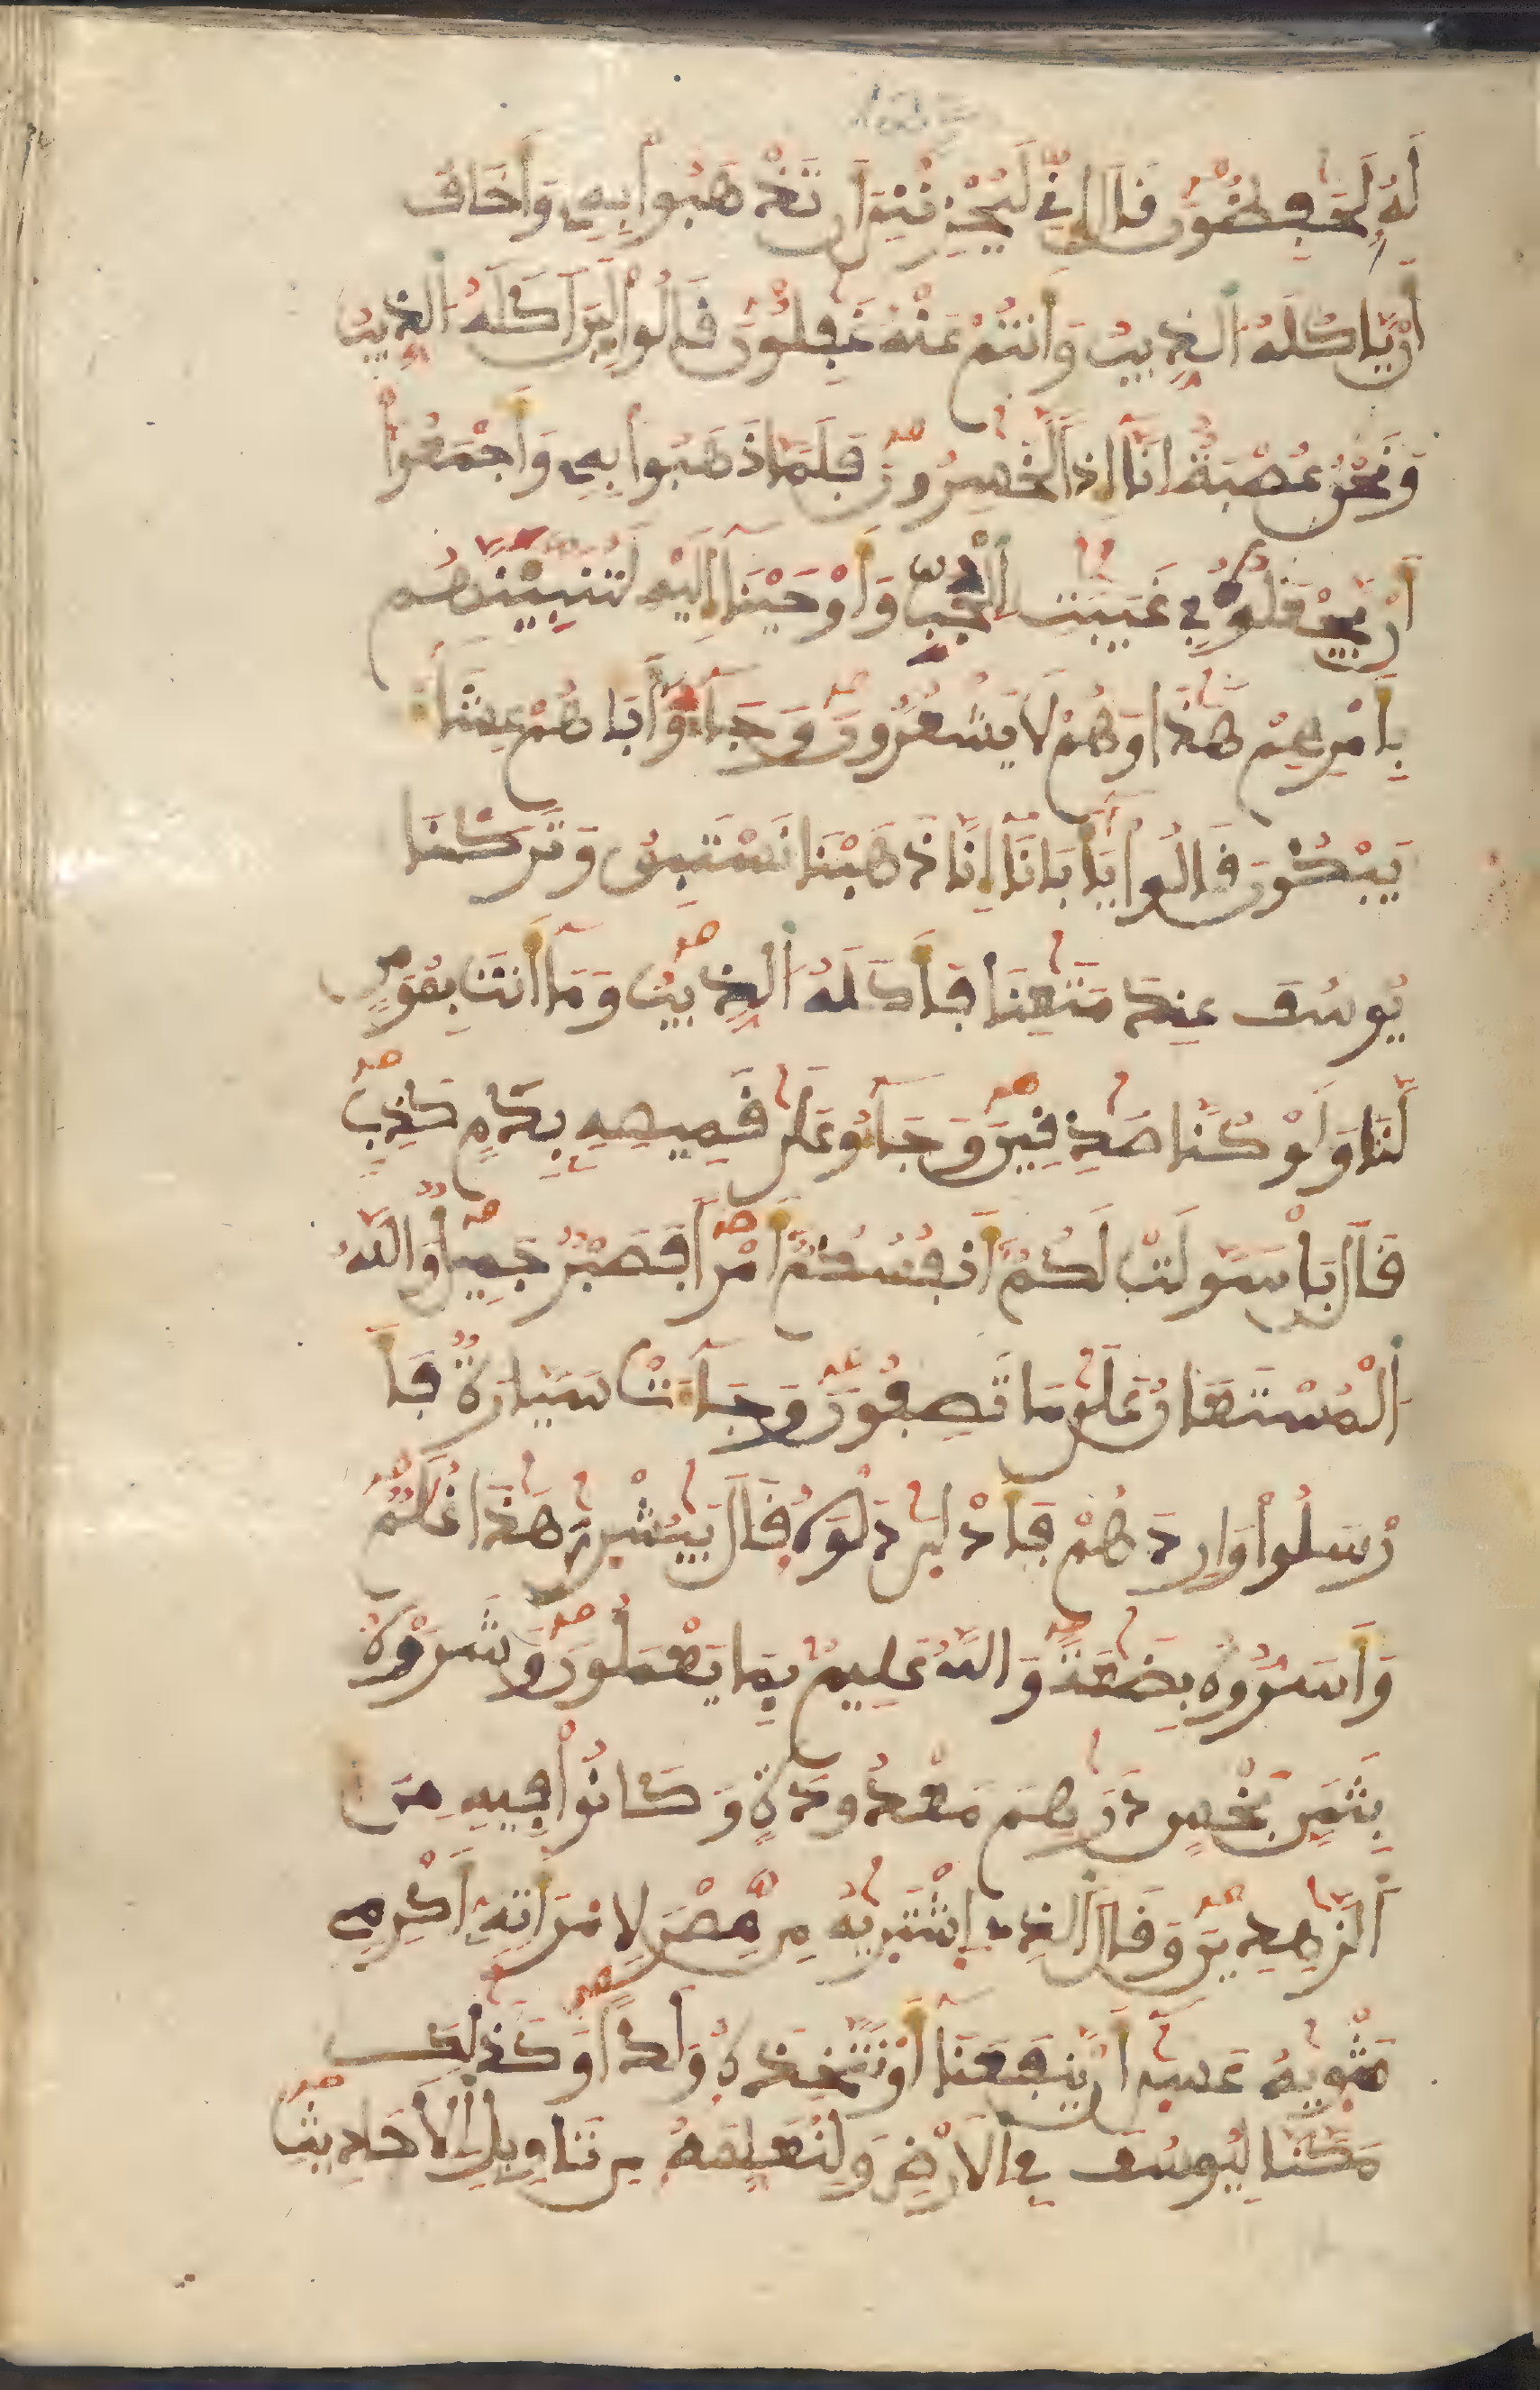 لَهُ لَحَٰفِظُونَ قَالَ إِنِّي لَيُحْزِنُنِي أَن تَذْهَبُواْ بِهِ وَأَخَافُ
أَنْ يَّاكُلَهُ الذِّيبُ وَأَنتُمْ عَنْهُ غَٰفِلُونَ قَالُواْ لَئِنَ اَكَلَهُ الذِّيبُ
وَنَحْنُ عُصْبَةٌ اِنَّا إِذاً لَّخَٰسِرُونَ فَلَمَّا ذَهَبُواْ بِهِ وَأَجْمَعُواْ
أَنْ يَّجْعَلُوهُ فِي غَيَٰبَٰتِ الْجُبِّ وَأَوْحَيْنَا إِلَيْهِ لَتُنَبِّئَنَّهُم
بِأَمْرِهِمْ هَٰذَا وَهُمْ لَا يَشْعُرُونَ وَجَآءُو أَبَاهُمْ عِشَآءً
يَبْكُونَ قَالُواْ يَٰأَبَانَا إِنَّا ذَهَبْنَا نَسْتَبِقُ وَتَرَكْنَا
يُوسُفَ عِندَ مَتَٰعِنَا فَأَكَلَهُ الذِّيبُ وَمَا أَنتَ بِمُومِنٍ
لَّنَا وَلَوْ كُنَّا صَٰدِقِينَ وَجَآءُو عَلَىٰ قَمِيصِهِ بِدَمٍ كَذِبٍ
قَالَ بَلْ سَوَّلَتْ لَكُمْ أَنفُسُكُمْ أَمْراً فَصَبْرٌ جَمِيلٌ وَاللَّهُ
الْمُسْتَعَانُ عَلَىٰ مَا تَصِفُونَ وَجَآءَتْ سَيَّارَةٌ فَأَ
رْسَلُواْ وَارِدَهُمْ فَأَدْلَىٰ دَلْوَهُ قَالَ يَٰبُشْرَٰيَ هَٰذَا غُلَٰمٌ
وَأَسَرُّوهُ بِضَٰعَةً وَاللَّهُ عَلِيمٌ بِمَا يَعْمَلُونَ وَشَرَوْهُ
بِثَمَنٍ بَخْسٍ دَرَٰهِمَ مَعْدُودَةٍ وَكَانُواْ فِيهِ مِنَ
الزَّٰهِدِينَ وَقَالَ الذِي اِشْتَرَيٰهُ مِن مِّصْرَ لِامْرَأَتِهِ أَكْرِمِي
مَثْوَيٰهُ عَسَىٰ أَنْ يَّنفَعَنَا أَوْ نَتَّخِذَهُ وَلَداً وَكَذَٰلِكَ
مَكَّنَّا لِيُوسُفَ فِي الَارْضِ وَلِنُعَلِّمَهُ مِن تَاوِيلِ الَاحَادِيثِ